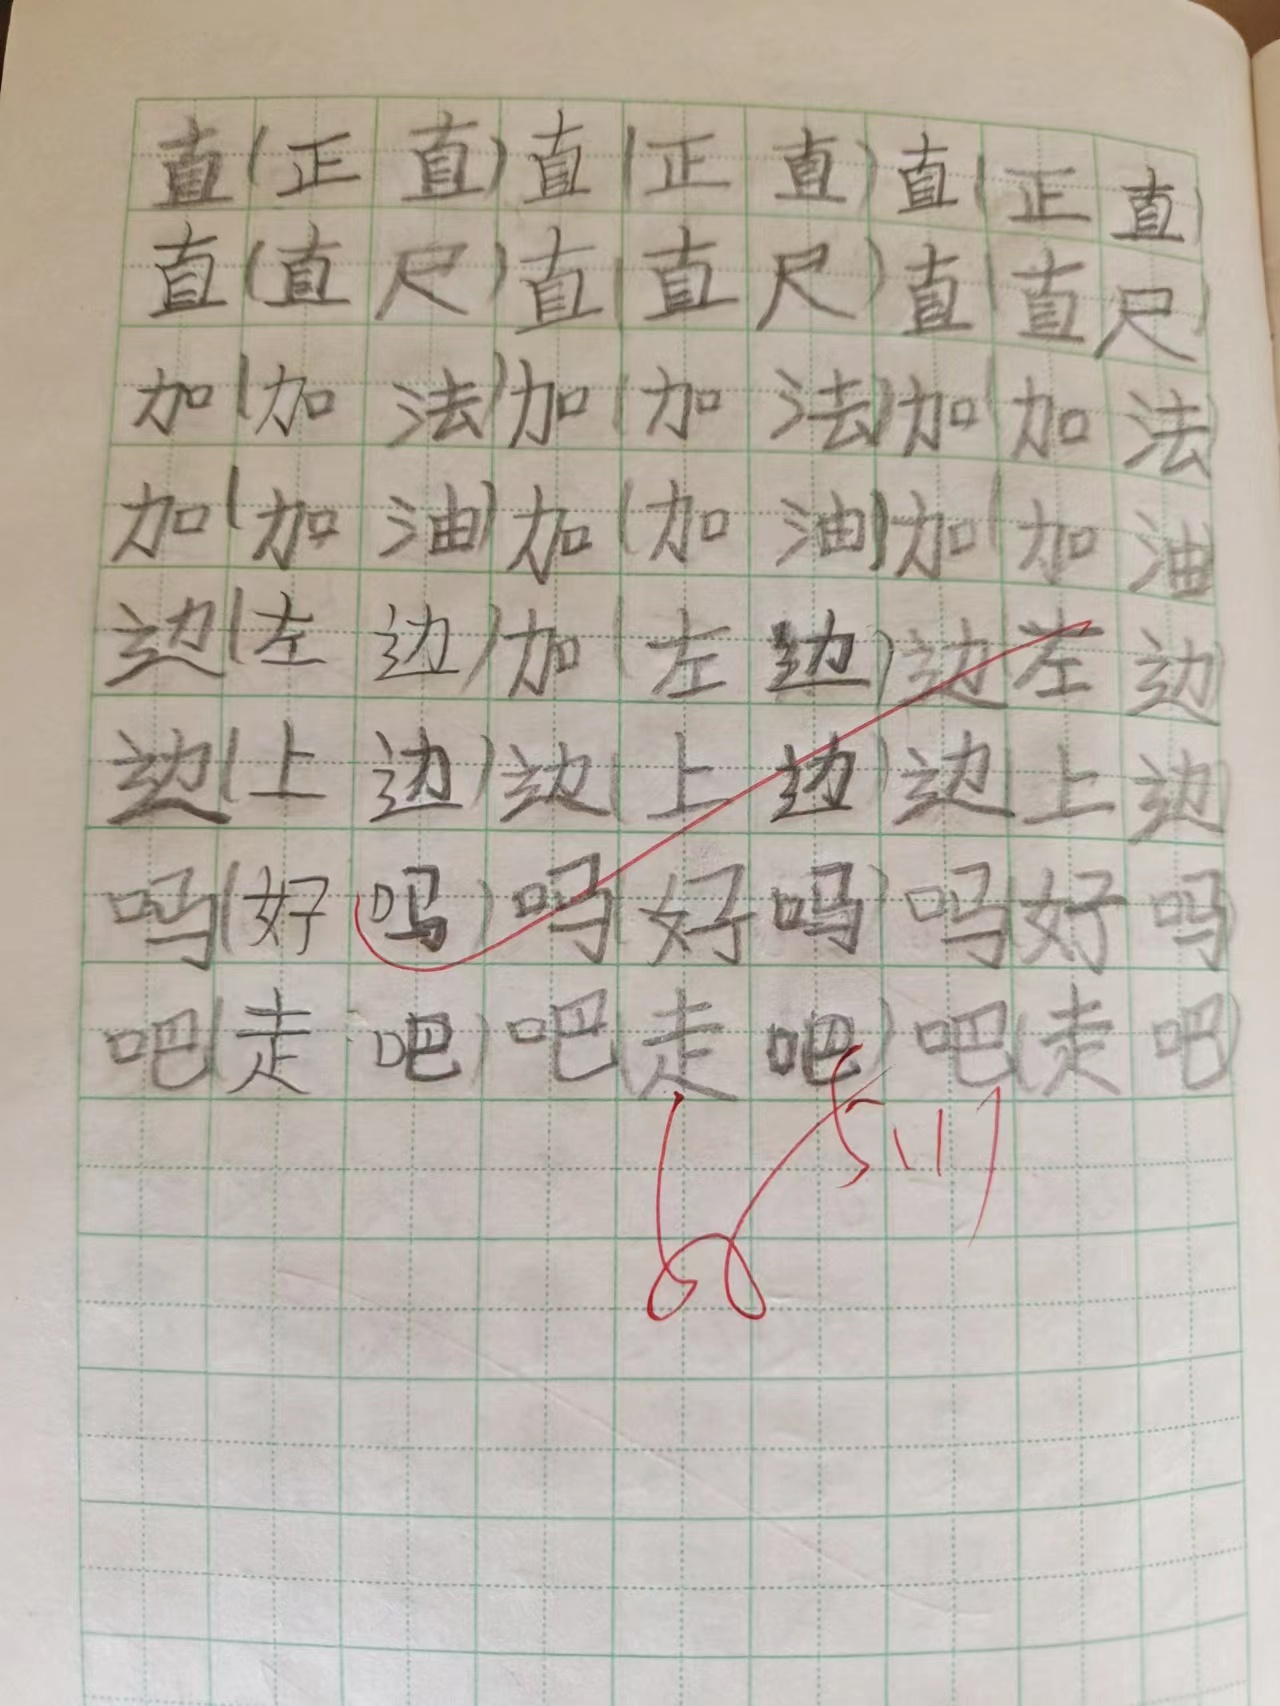 直(正直)直(正直)直(正直)
直(直尺)直(直尺)直(直尺)
加(加法)加(加法)加(加法)
加(加油)加(加油)加(加油)
边(左边)加(左边)边左边
边(上边)边(上边)边(上边
吗(好吗)吗(好吗)吗(好吗)
吧(走吧)吧(走吧)吧(走吧)